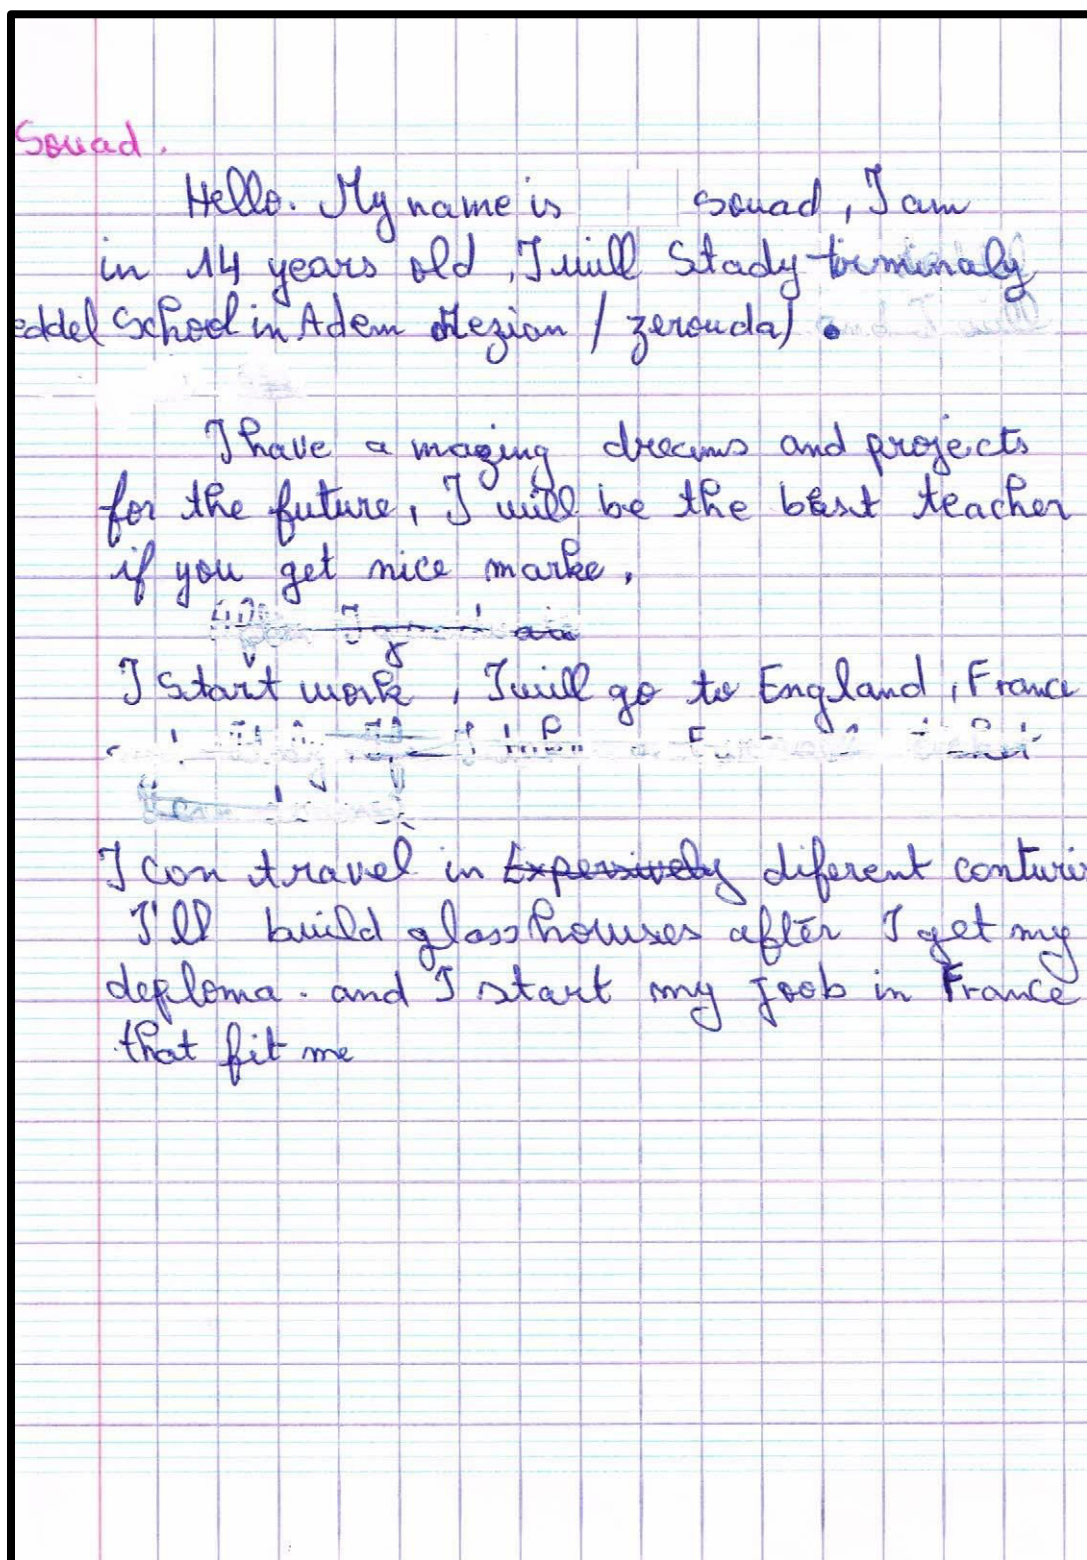 Souad.
Hello. My name is souad, I am
in 14 years old, I will Stady terminaly
eddel School in Adem Mezian / zerouda / .
I have a mazing dreams and projects
for the future, I will be the best teacher
if you get nice marke,
I start work, I will go to England, France
I con travel in Expensively diferent conturi
I'll build glass houses after I get my
deploma. and I start my joob in France
that fit me